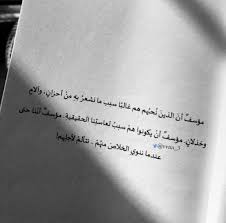 مؤسفٌ أنّ الذين نُحبّهم هم غالبًا سبب ما نشعرُ به مِنْ أحزانٍ، وآلامٍ
وخذلانٍ، مؤسفٌ أنْ يكونوا هم سببُ تعاستنا الحقيقية. مؤسفٌ أننا حتى
عندما ننوي الخلاص منهُم - نتألمُ لأجلِهم!